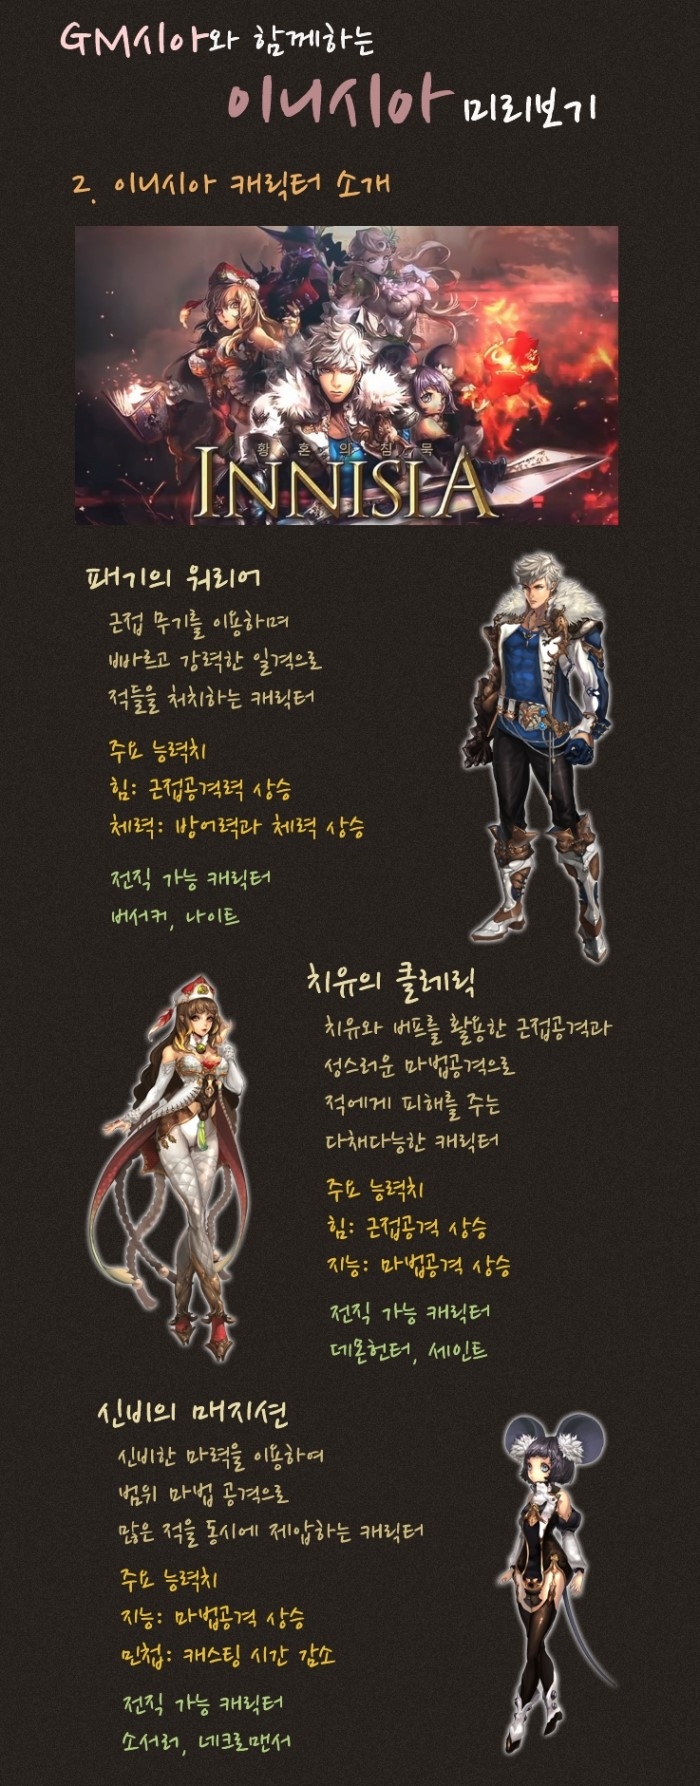 GM시아와 함께하는
이니시아 미리보기
2. 이니시아 캐릭터 소개
황혼의 침묵
INNISIA
패기의 워리어
근접 무기를 이용하며
빠르고 강력한 일격으로
적들을 처치하는 캐릭터
주요 능력치
힘: 근접공격력 상승
체력: 방어력과 체력 상승
전직 가능 캐릭터
버서커, 나이트
치유의 클레릭
치유와 버프를 활용한 근접공격과
성스러운 마법공격으로
적에게 피해를 주는
다채다능한 캐릭터
주요 능력치
힘: 근접공격 상승
지능: 마법공격 상승
전직 가능 캐릭터
데몬헌터, 세인트
신비의 매지션
신비한 마력을 이용하여
범위 마법 공격으로
많은 적을 동시에 제압하는 캐릭터
주요 능력치
지능: 마법공격 상승
민첩: 캐스팅 시간 감소
전직 가능 캐릭터
소서러, 네크로맨서